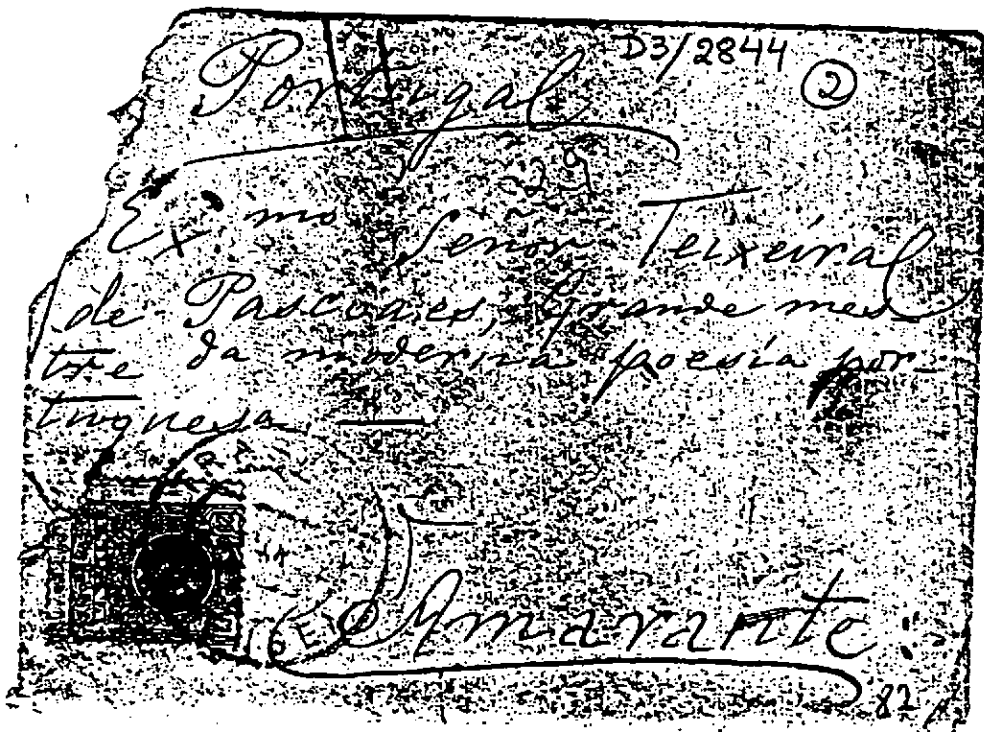 D3/2844
②
Portugal
29
Exmo Señor Teixeira
de Pascoaes, Grande mes-
tre da moderna poesía por-
tuguesa —
Amarante
82